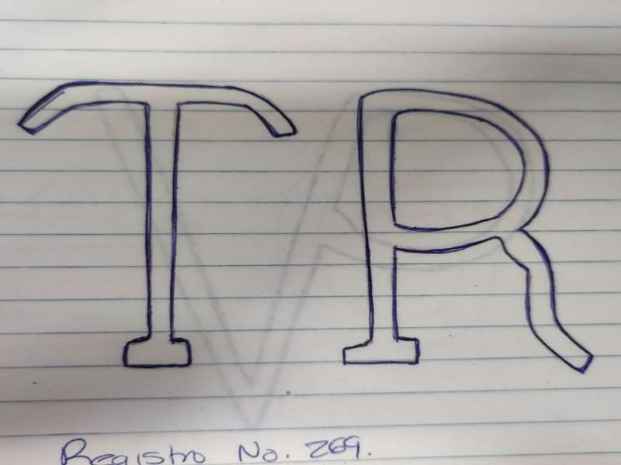 TR
Registro No. 269.